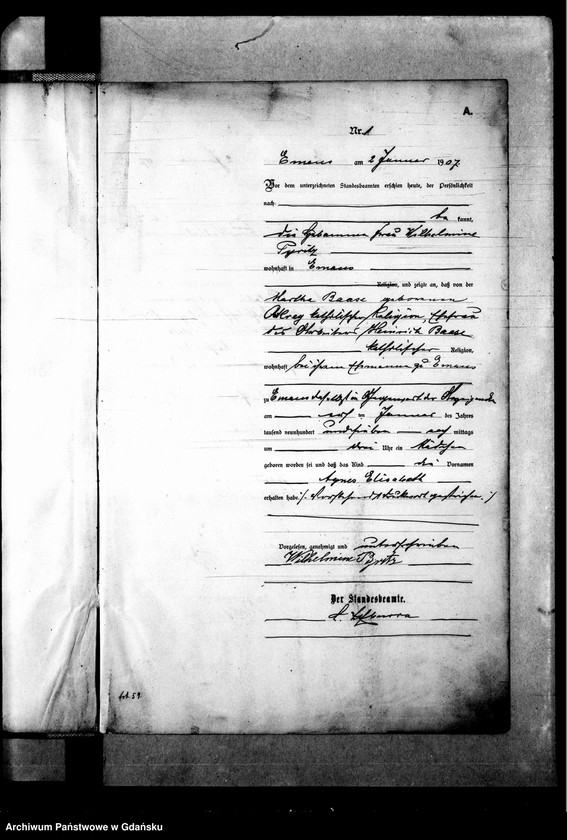 A.
Nr. 1
Emaus am 2 Januar 1907
Vor dem unterzeichneten Standesbeamten erschien heute, der Persönlichkeit
nach
be kannt,
die Hebamme Frau Wilhelmine
wohnhaft in Emaus
Religion, und zeigte an, daß von der
Martha Baase geborenen
katholischer Religion, Ehefrau
des Arbeiters Heinrich Baase
katholischer Religion,
wohnhaft bei ihrem Ehemanne zu Emaus
zu Emaus daselbst in Gegenwart der Anzeigenden
am im Januar des Jahres
tausend neunhundert und sieben mittags
um drei Uhr ein Mädchen
geboren worden sei und daß das Kind die Vornamen
Agnes Elisabeth
erhalten habe /: Vorstehend 1 Druckwort gestrichen. :/
Vorgelesen, genehmigt und unterschrieben
Wilhelmine
Der Standesbeamte.
fot. 59
Archiwum Państwowe w Gdańsku